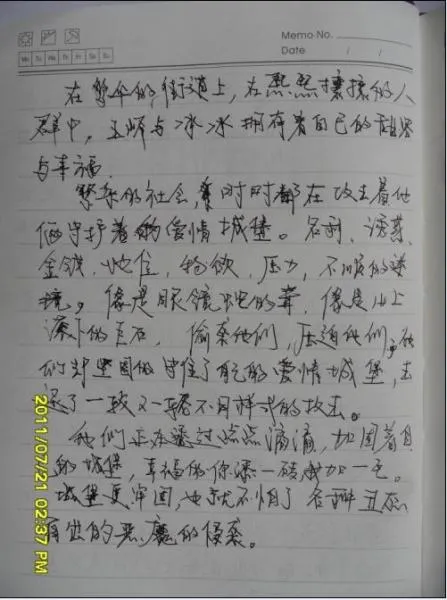 Memo No.
Date / /
Mo Tu We Th Fr Sa Su
在繁华的街道上，在熙熙攘攘的人
群中，玉娇与冰冰拥有着自己的甜蜜
与幸福.
繁杂的社会，时时都在攻击着他
俩守护着的爱情城堡。名利、诱惑、
金钱、地位，物欲，压力，不顺的
。像是眼镜蛇的毒，像是山上
滚下的巨石，偷袭他们，压迫他们。他
们却坚固的守住了自己的爱情城堡，击
退了一拨又一拨不同样式的攻击。
他们正在通过点点滴滴，加固着自
己的城堡，幸福的你添一砖我加一瓦。
城堡更牢固，也就不怕了各种丑恶
百出的恶魔的侵袭。
2011/07/21 02:37 PM